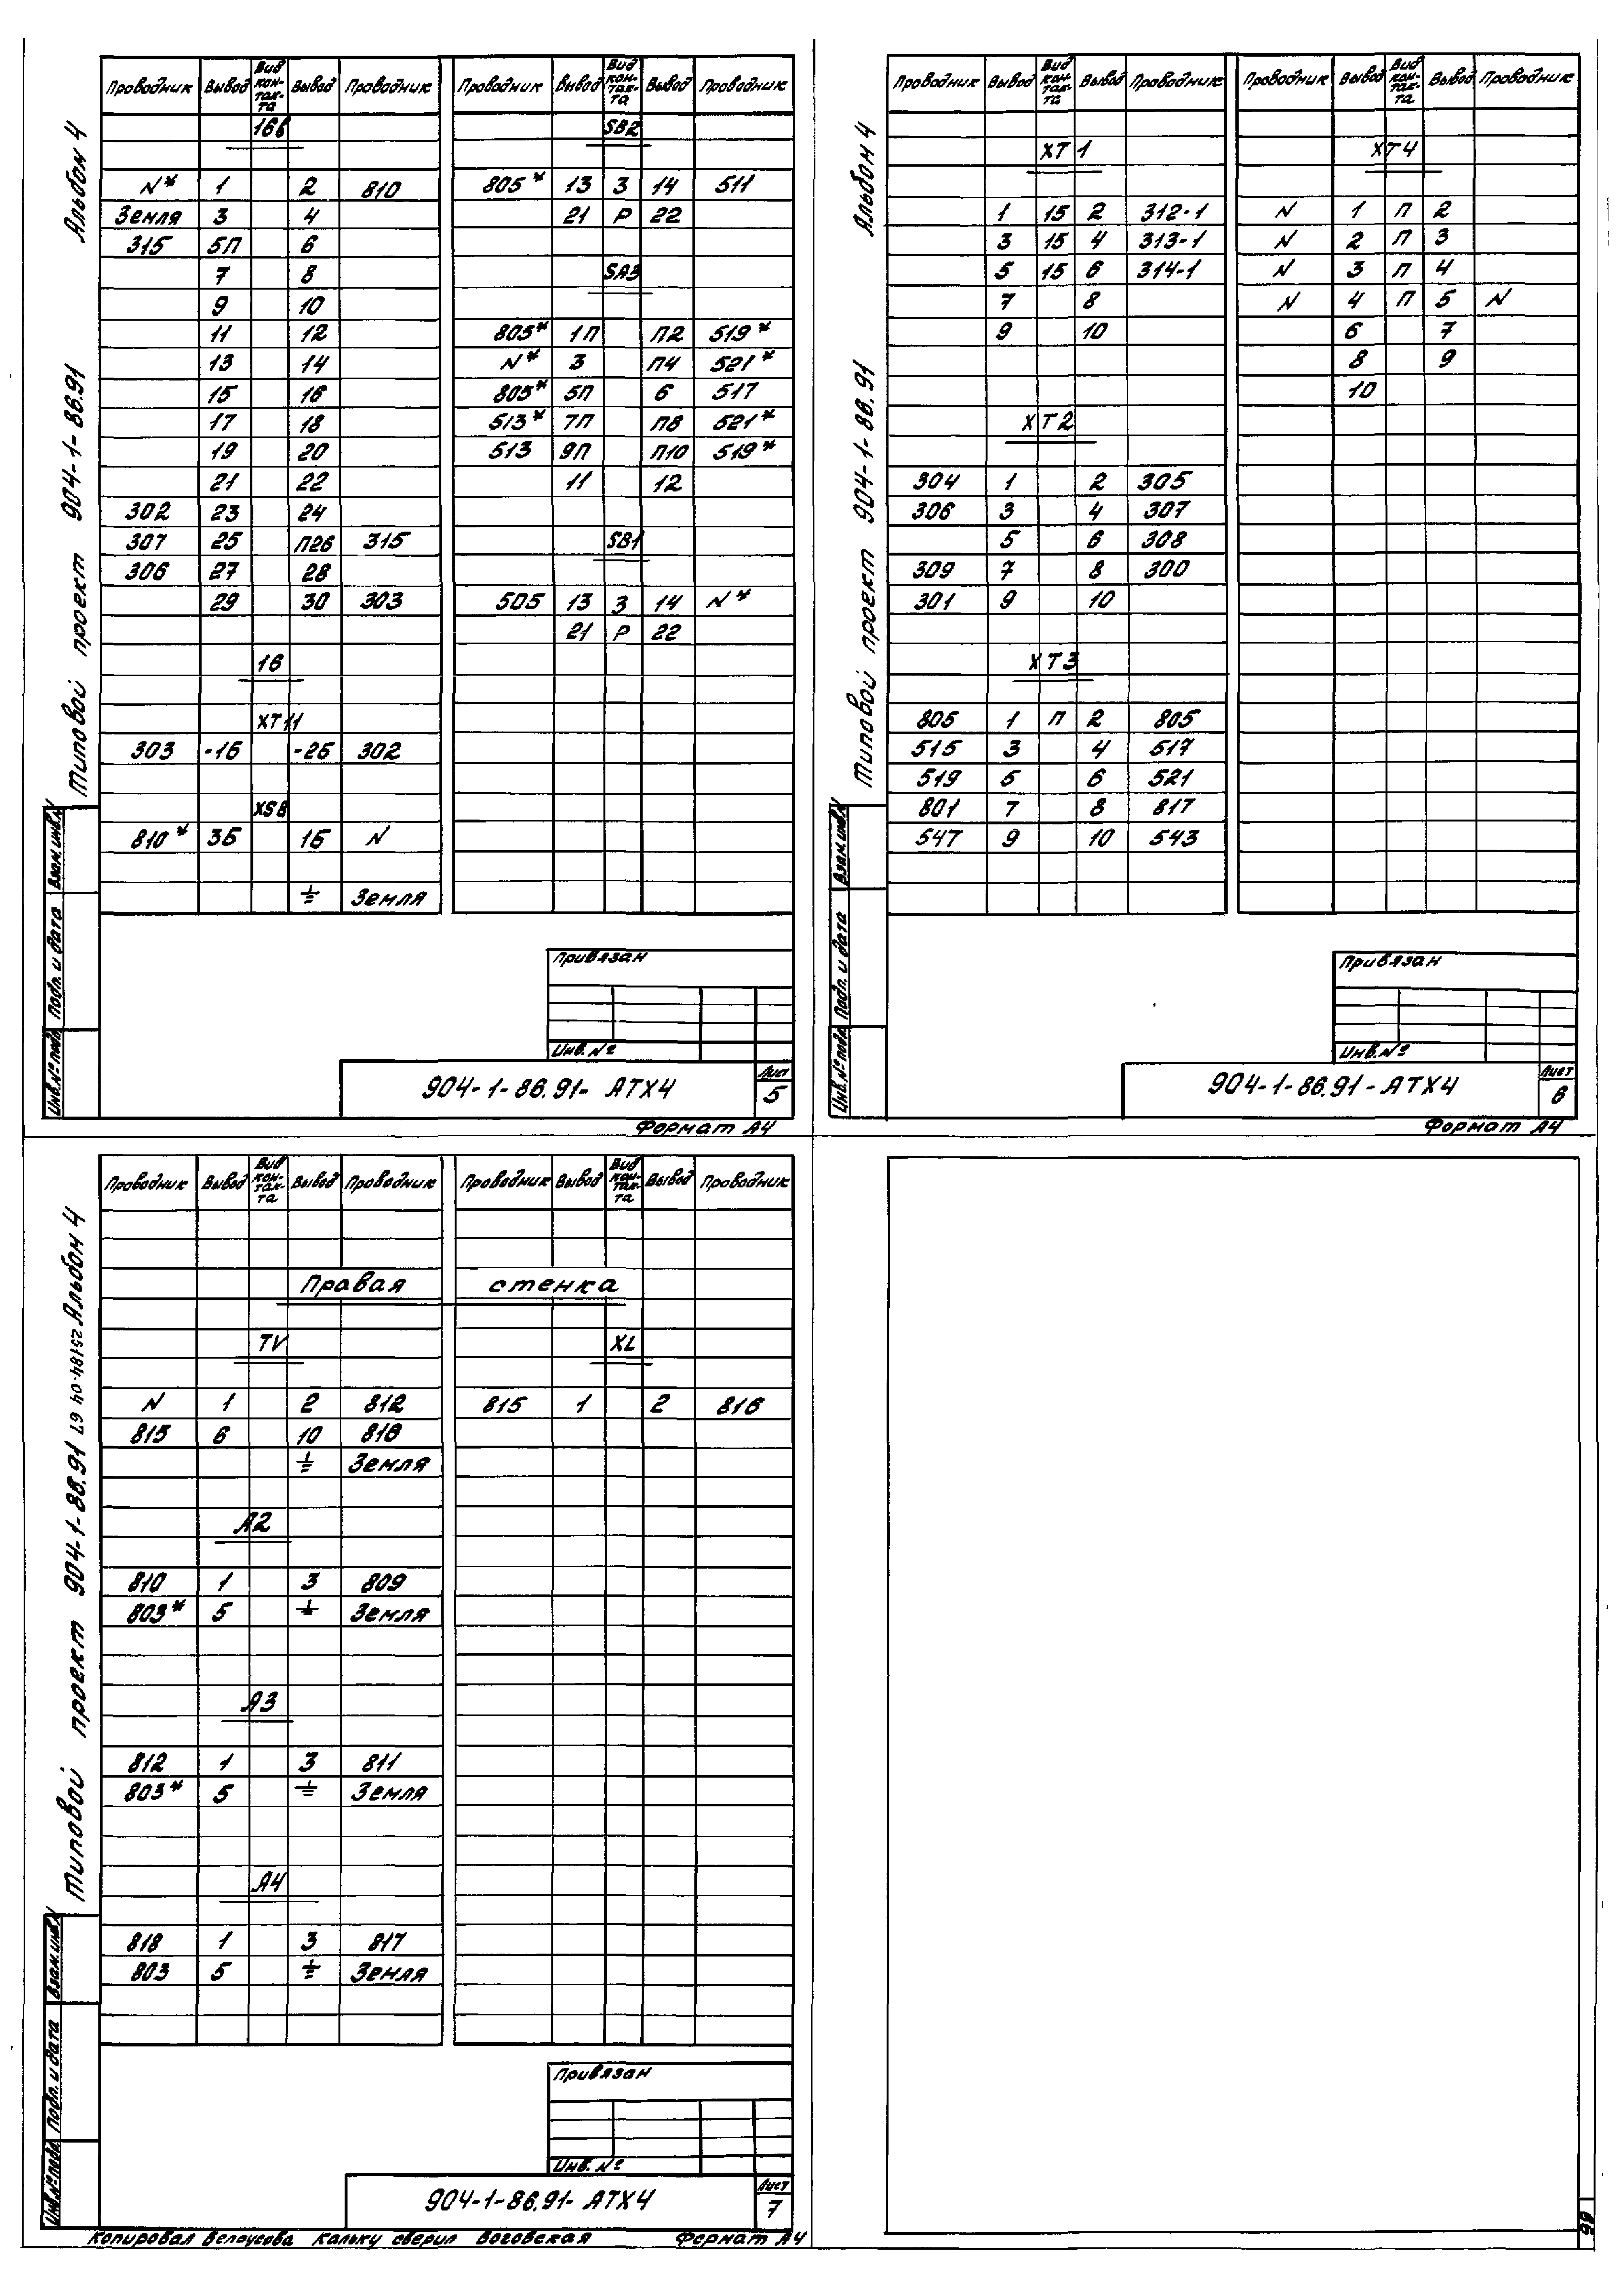 Альбом 4
Типовой проект 904-1-86.91
Проводник Вывод Вид контакта Вывод Проводник
166
N* 1 2 810
Земля 3 4
315 5П 6
7 8
9 10
11 12
13 14
15 16
17 18
19 20
21 22
302 23 24
307 25 П26 315
306 27 28
29 30 303
16
XT11
303 -1б -2б 302
XS8
810* 3б 1б N
⏚ Земля
Проводник Вывод Вид контакта Вывод Проводник
SB2
805* 13 З 14 511
21 Р 22
SA3
805* 1П П2 519*
N* 3 П4 521*
805* 5П 6 517
513* 7П П8 521*
513 9П П10 519*
11 12
SB1
505 13 З 14 N*
21 Р 22
Взам. инв. №
Подп. и дата
Инв. № подл.
Привязан
Инв. №
904-1-86.91- АТХ4
Лист
5
Формат А4
Альбом 4
Типовой проект 904-1-86.91
Проводник Вывод Вид контакта Вывод Проводник
XT1
1 15 2 312-1
3 15 4 313-1
5 15 6 314-1
7 8
9 10
XT2
304 1 2 305
306 3 4 307
5 6 308
309 7 8 300
301 9 10
XT3
805 1 П 2 805
515 3 4 517
519 5 6 521
801 7 8 817
547 9 10 543
Проводник Вывод Вид контакта Вывод Проводник
XT4
N 1 П 2
N 2 П 3
N 3 П 4
N 4 П 5 N
6 7
8 9
10
Взам. инв. №
Подп. и дата
Инв. № подл.
Привязан
Инв. №
904-1-86.91-АТХ4
Лист
6
Формат А4
Типовой проект 904-1-86.91 25184-04 67 Альбом 4
Проводник Вывод Вид контакта Вывод Проводник
Проводник Вывод Вид контакта Вывод Проводник
Правая стенка
TV
N 1 2 812
815 6 10 816
⏚ Земля
А2
810 1 3 809
803* 5 ⏚ Земля
А3
812 1 3 811
803* 5 ⏚ Земля
А4
818 1 3 817
803 5 ⏚ Земля
XL
815 1 2 816
Взам. инв. №
Подп. и дата
Инв. № подл.
Привязан
Инв. №
904-1-86.91- АТХ4
Лист
7
Копировал Белоусова Кальку сверил Боговская Формат А4
66